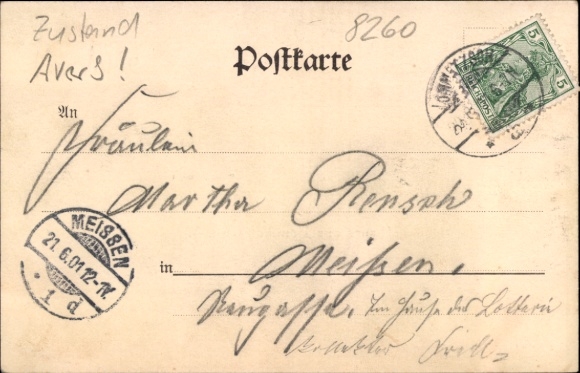 Zustand
Avers!
8260
Postkarte
5
LOMMATZSCH
An
Fräulein
Martha Rensch
MEISSEN
21.6.01.12-1N.
1 d
in Meißen,
Neugasse, Im Hause des Lotterie